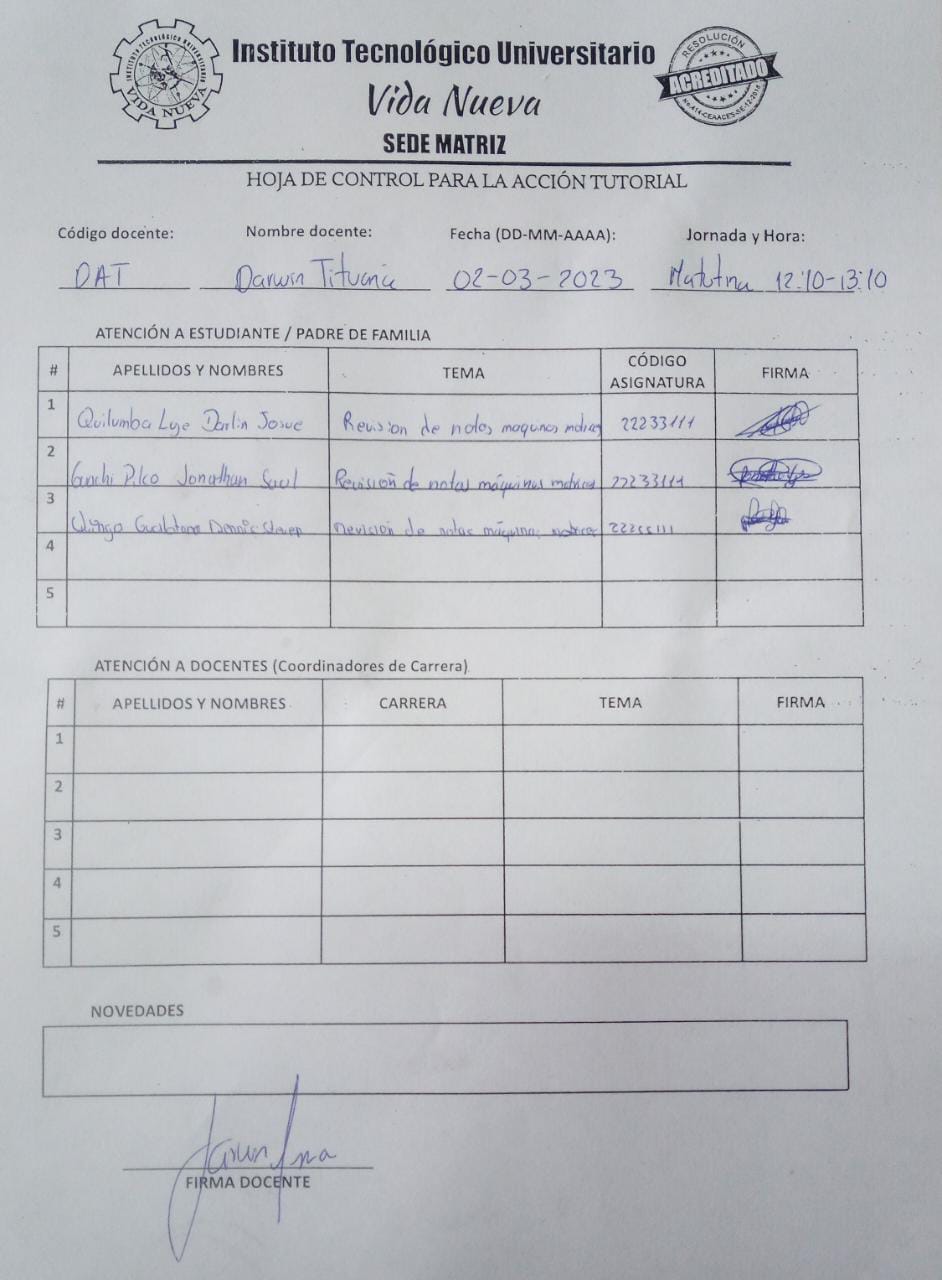 INSTITUTO TECNOLÓGICO UNIVERSITARIO
VIDA NUEVA
Instituto Tecnológico Universitario
Vida Nueva
SEDE MATRIZ
RESOLUCIÓN
ACREDITADO
HOJA DE CONTROL PARA LA ACCIÓN TUTORIAL
Código docente: Nombre docente: Fecha (DD-MM-AAAA): Jornada y Hora:
DAT Darwin Tituaña 02-03-2023 Matutina 12:10-13:10
ATENCIÓN A ESTUDIANTE / PADRE DE FAMILIA
# APELLIDOS Y NOMBRES TEMA CÓDIGO ASIGNATURA FIRMA
1 Quilumba Darlin Josue Revision de notas maquinas motrices 22233111
2 Pilco Jonathan Saul Revisión de notas máquinas motrices 22233111
3 Dennis revisión de notas máquinas motrices
4
5
ATENCIÓN A DOCENTES (Coordinadores de Carrera)
# APELLIDOS Y NOMBRES CARRERA TEMA FIRMA
1
2
3
4
5
NOVEDADES
FIRMA DOCENTE